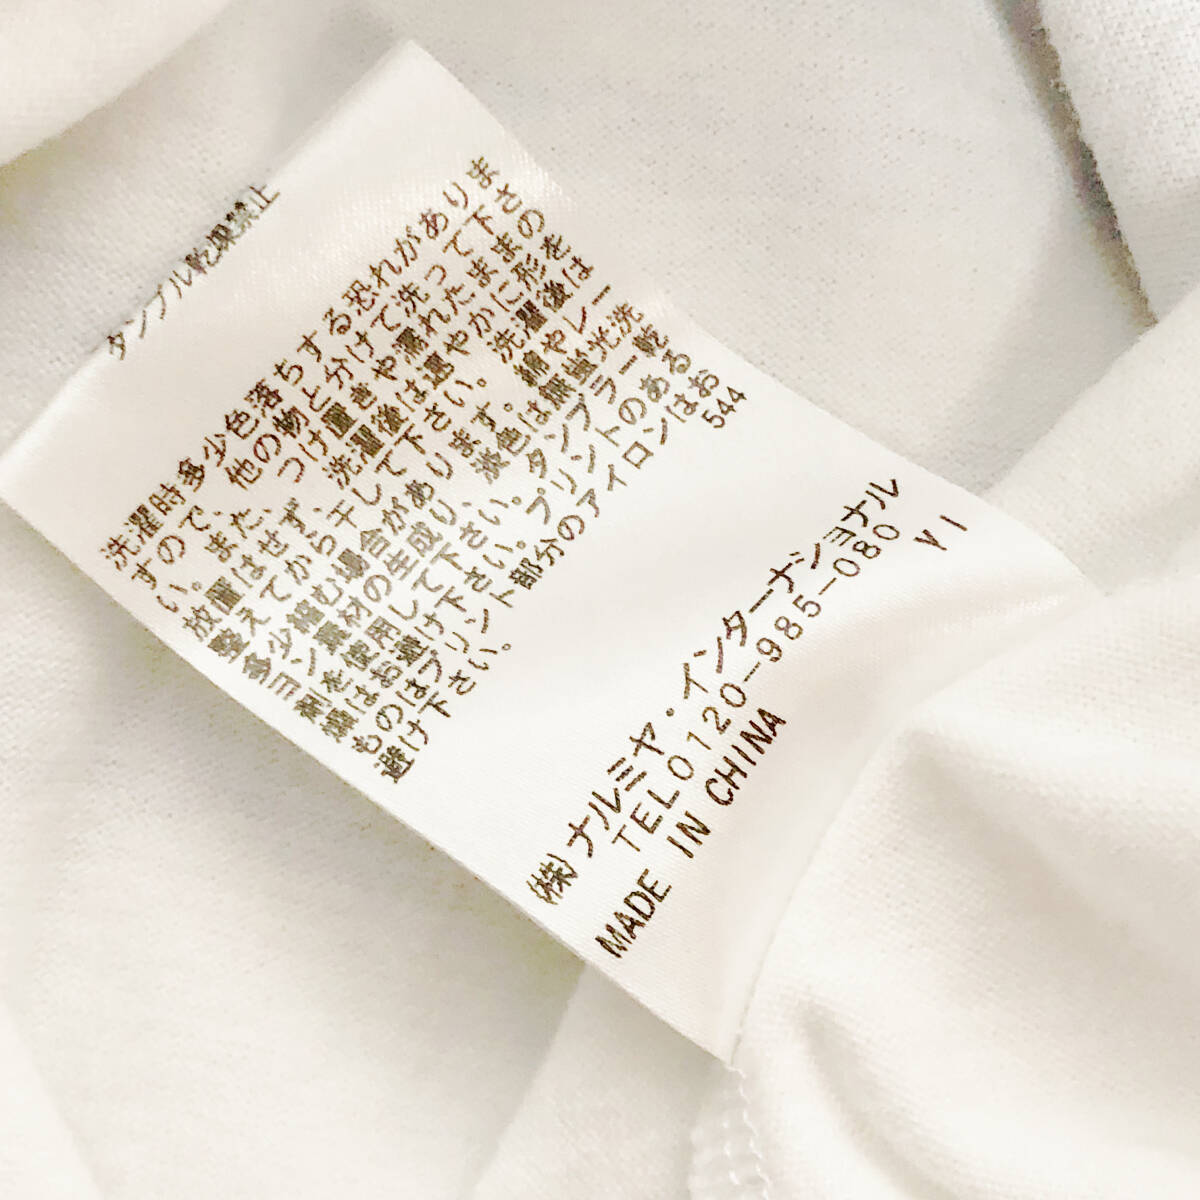 タンブル乾燥禁止
洗濯時多少色落ちする恐れがありま
すので、他の物と分けて洗って下さ
い。また、つけ置きや濡れたままの
放置はせず、洗濯後は速やかに形を
整えてから干して下さい。洗濯後は
多少縮む場合があります。綿やレー
ヨン素材の生成り、淡色は無蛍光洗
剤を使用して下さい。タンブラー乾
燥はお避け下さい。プリントのある
ものはプリント部分のアイロンはお
避け下さい。
544
(株)ナルミヤ・インターナショナル
TEL0120-985-080
MADE IN CHINA
YI